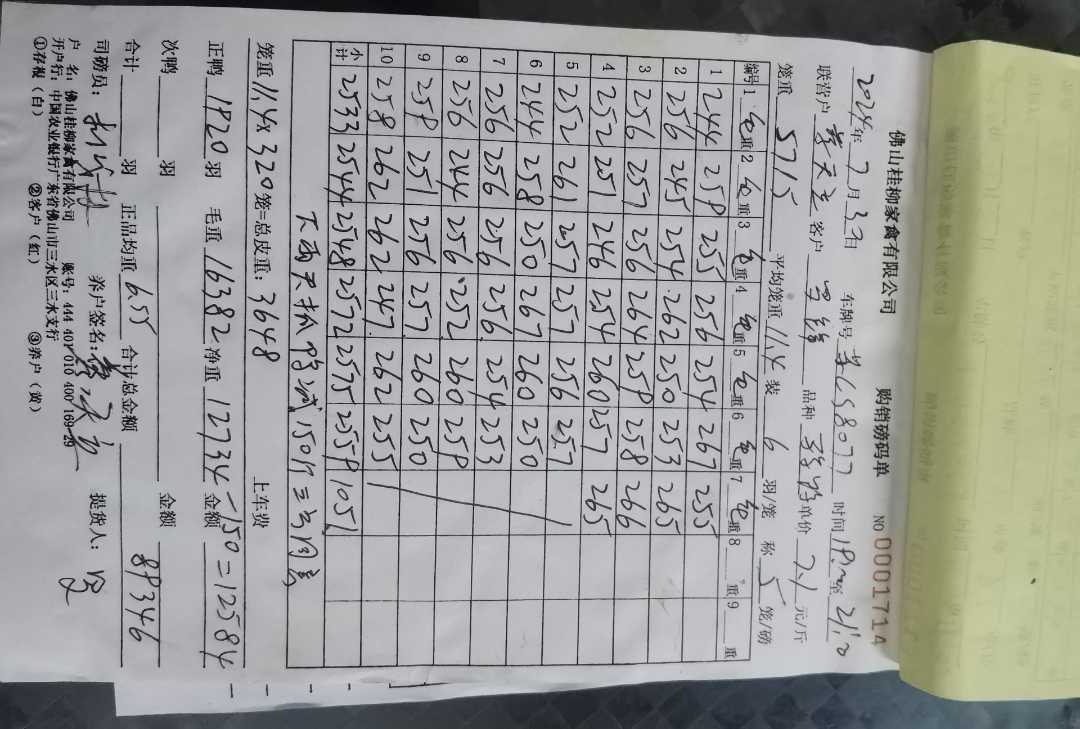 佛山桂柳家禽有限公司 购销磅码单 NO 0001714
2024年7月3日 车牌号 58077 时间 19: 至 21:20
联营户 客户 品种 单价 7.1 元/斤
笼重 5715 平均笼重 11.4 装 6 羽/笼 称 5 笼/磅
编号 1 毛重 2 毛重 3 毛重 4 毛重 5 毛重 6 毛重 7 毛重 8 重 9 重
1 244 259 255 256 254 267 255
2 256 245 254 262 250 253 265
3 256 257 256 264 259 258 266
4 252 251 246 254 260 257 265
5 252 261 257 257 256 257
6 244 258 250 267 260 250
7 256 256 256 256 254 253
8 256 244 256 252 260 259
9 259 251 256 257 260 250
10 258 262 262 247 262 255
小计 2533 2544 2548 2572 2575 2559 1051
下雨天抓鸭减150斤三方同意
笼重 11.4×320笼=总皮重: 3648 上车费
正鸭 1920 羽 毛重 16382 净重 12734-150=12584 金额
次鸭 羽 金额
合计 羽 正品均重 6.55 合计总金额 89346
司磅员: 养户签名: 提货人:
户 名: 佛山桂柳家禽有限公司 账号: 444 401 010 400 169 29
开户行: 中国农业银行广东省佛山市三水区三水支行
①存根(白) ②客户(红) ③养户(黄)